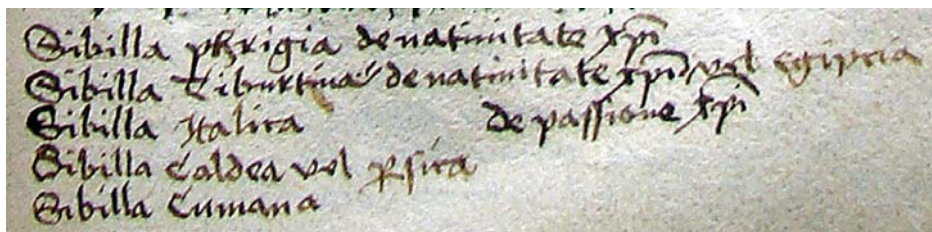 Sibilla phrigia de natiuitate xp̄i
Sibilla Tiburtina de natiuitate xp̄i vel egiptia
Sibilla Italica de passione xp̄i
Sibilla Caldea vel ꝑsica
Sibilla Cumana